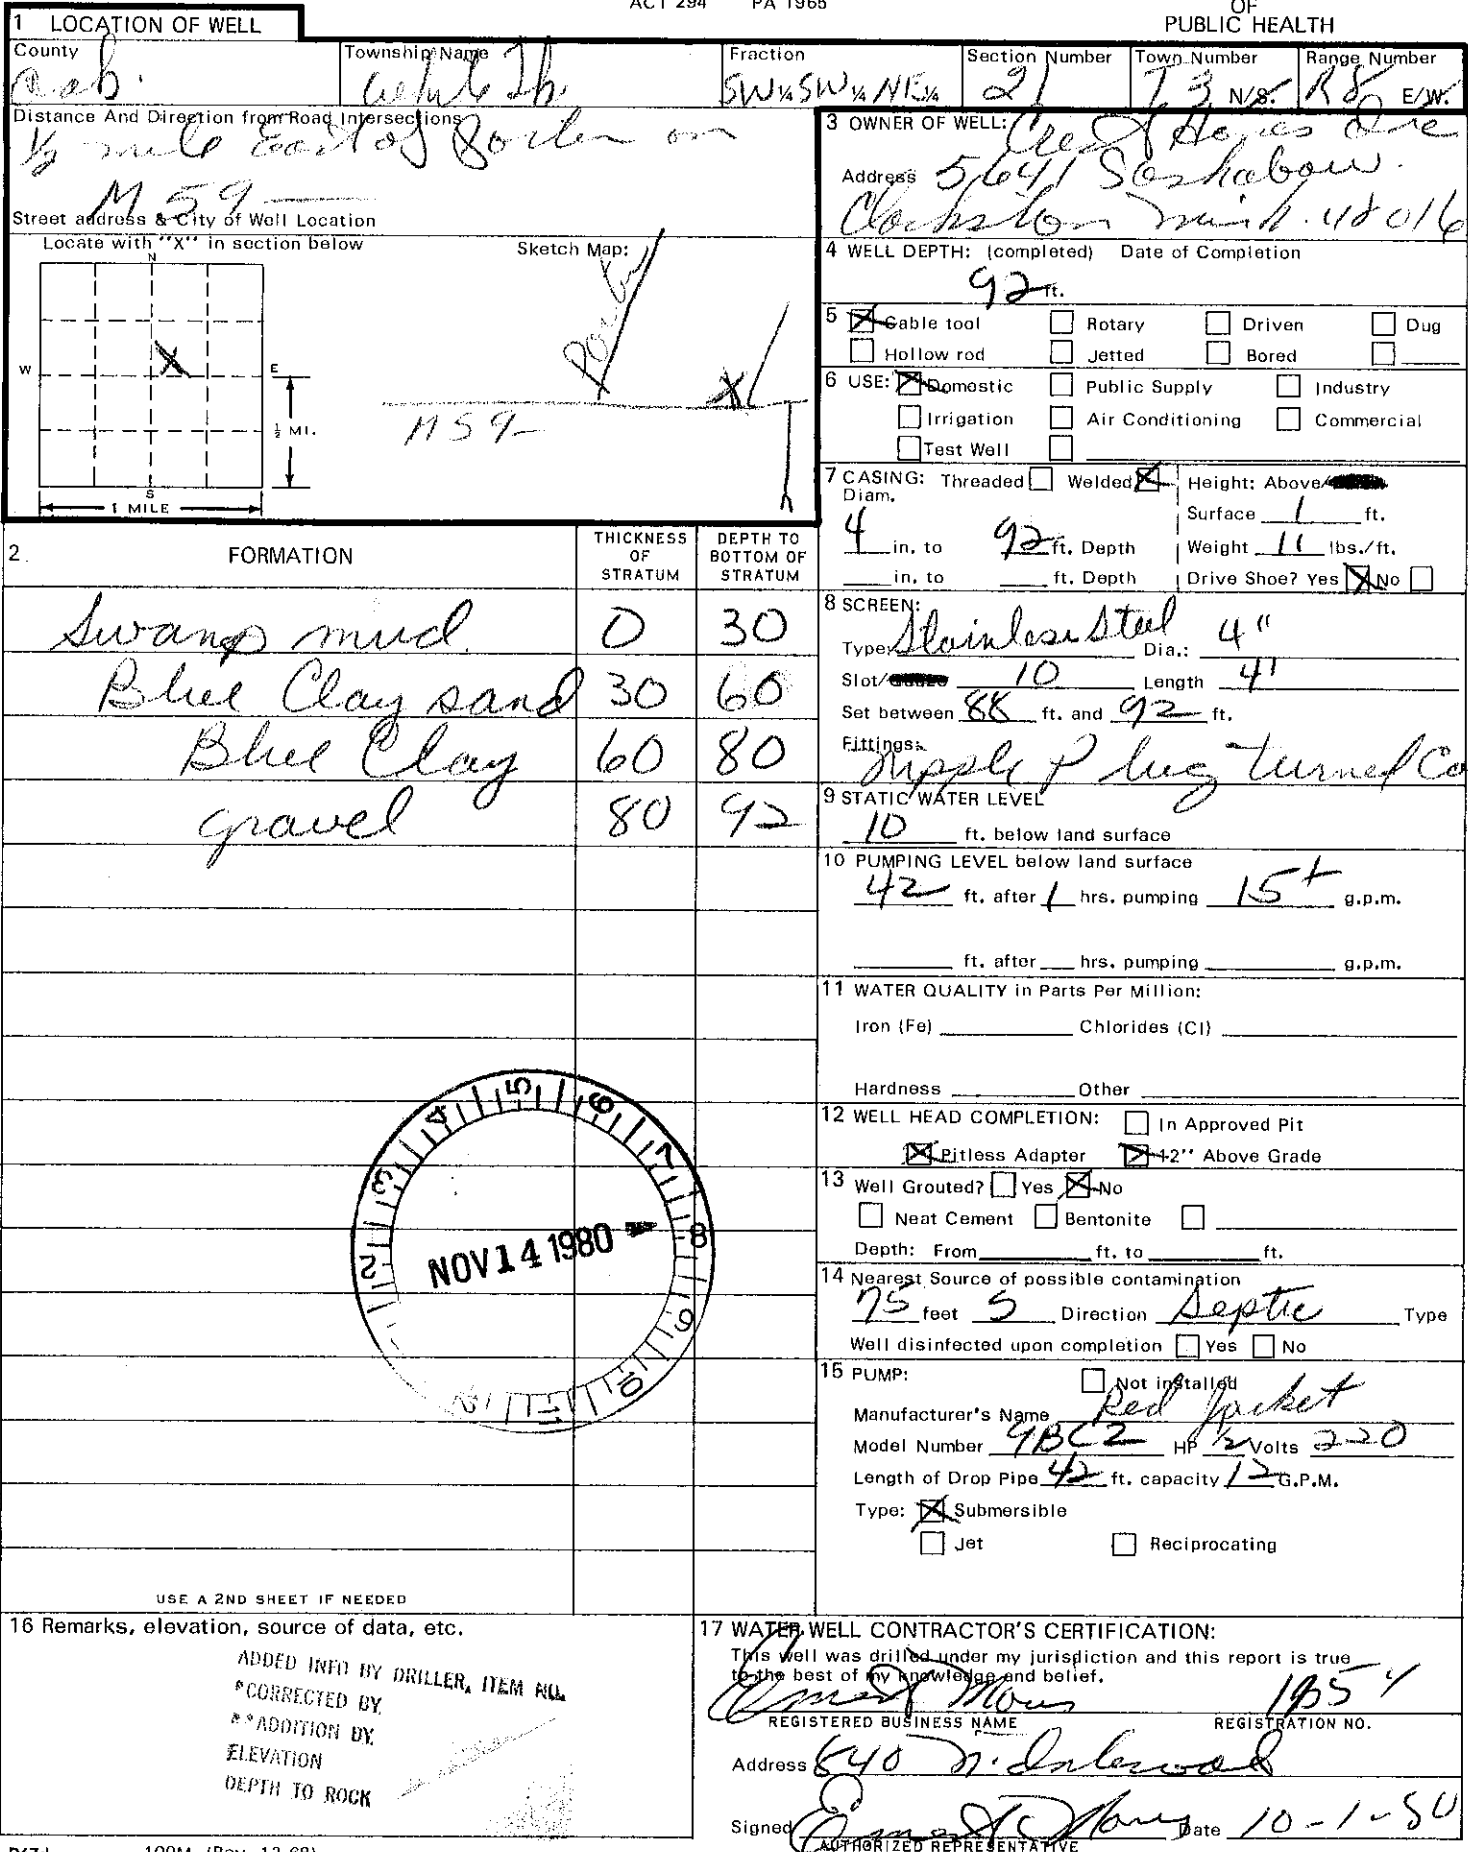 ACT 294 PA 1965
OF
PUBLIC HEALTH
1 LOCATION OF WELL
County
Township Name
Fraction
SW¼ SW¼ NE¼
Section Number
21
Town Number
T 3 N/S.
Range Number
R8 E/W.
Distance And Direction from Road Intersections
½ mile East of Porter on
M 59
Street address & City of Well Location
Locate with "X" in section below
Sketch Map:
N
W
E
S
½ MI.
1 MILE
X
X
M 59
3 OWNER OF WELL:
Address 5641
Clarkston Mich. 48016
4 WELL DEPTH: (completed) Date of Completion
92 ft.
5 Cable tool Rotary Driven Dug
Hollow rod Jetted Bored
6 USE: Domestic Public Supply Industry
Irrigation Air Conditioning Commercial
Test Well
7 CASING: Threaded Welded Height: Above/
Diam. Surface 1 ft.
4 in. to 92 ft. Depth Weight 11 lbs./ft.
in. to ft. Depth Drive Shoe? Yes No
2. FORMATION
THICKNESS OF STRATUM
DEPTH TO BOTTOM OF STRATUM
Swamp mud 0 30
Blue Clay sand 30 60
Blue Clay 60 80
gravel 80 92
8 SCREEN:
Type: Stainless Steel Dia.: 4"
Slot/ 10 Length 4'
Set between 88 ft. and 92 ft.
Fittings:
Nipple Plug turned Co
9 STATIC WATER LEVEL
10 ft. below land surface
10 PUMPING LEVEL below land surface
42 ft. after 1 hrs. pumping 15+ g.p.m.
ft. after hrs. pumping g.p.m.
11 WATER QUALITY in Parts Per Million:
Iron (Fe) Chlorides (Cl)
Hardness Other
12 WELL HEAD COMPLETION: In Approved Pit
Pitless Adapter 12" Above Grade
13 Well Grouted? Yes No
Neat Cement Bentonite
Depth: From ft. to ft.
14 Nearest Source of possible contamination
75 feet S Direction Septic Type
Well disinfected upon completion Yes No
15 PUMP: Not installed
Manufacturer's Name Red Jacket
Model Number HP ½ Volts 220
Length of Drop Pipe 42 ft. capacity 12 G.P.M.
Type: Submersible
Jet Reciprocating
2 3 4 5 6 7 8 9 10 11 12
NOV 14 1980
USE A 2ND SHEET IF NEEDED
16 Remarks, elevation, source of data, etc.
ADDED INFO BY DRILLER, ITEM NO.
*CORRECTED BY.
**ADDITION BY.
ELEVATION
DEPTH TO ROCK
17 WATER WELL CONTRACTOR'S CERTIFICATION:
This well was drilled under my jurisdiction and this report is true
to the best of my knowledge and belief.
REGISTERED BUSINESS NAME REGISTRATION NO.
Address 840 N.
Signed Date 10-1-80
AUTHORIZED REPRESENTATIVE
100M (Rev. 12-68)